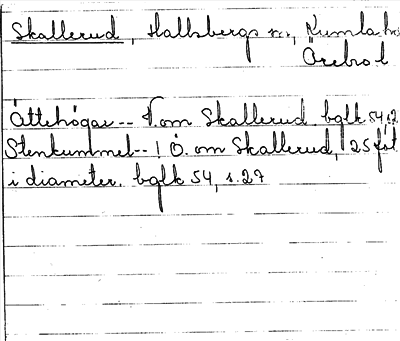 Skallerud, Hallsbergs sn., Kumla hd
Örebro l
Ättehögar -- V. om Skallerud. bglk 54,
Stenkummel -- 1 Ö. om Skallerud, 25 fot
i diameter. bglk 54, s. 27